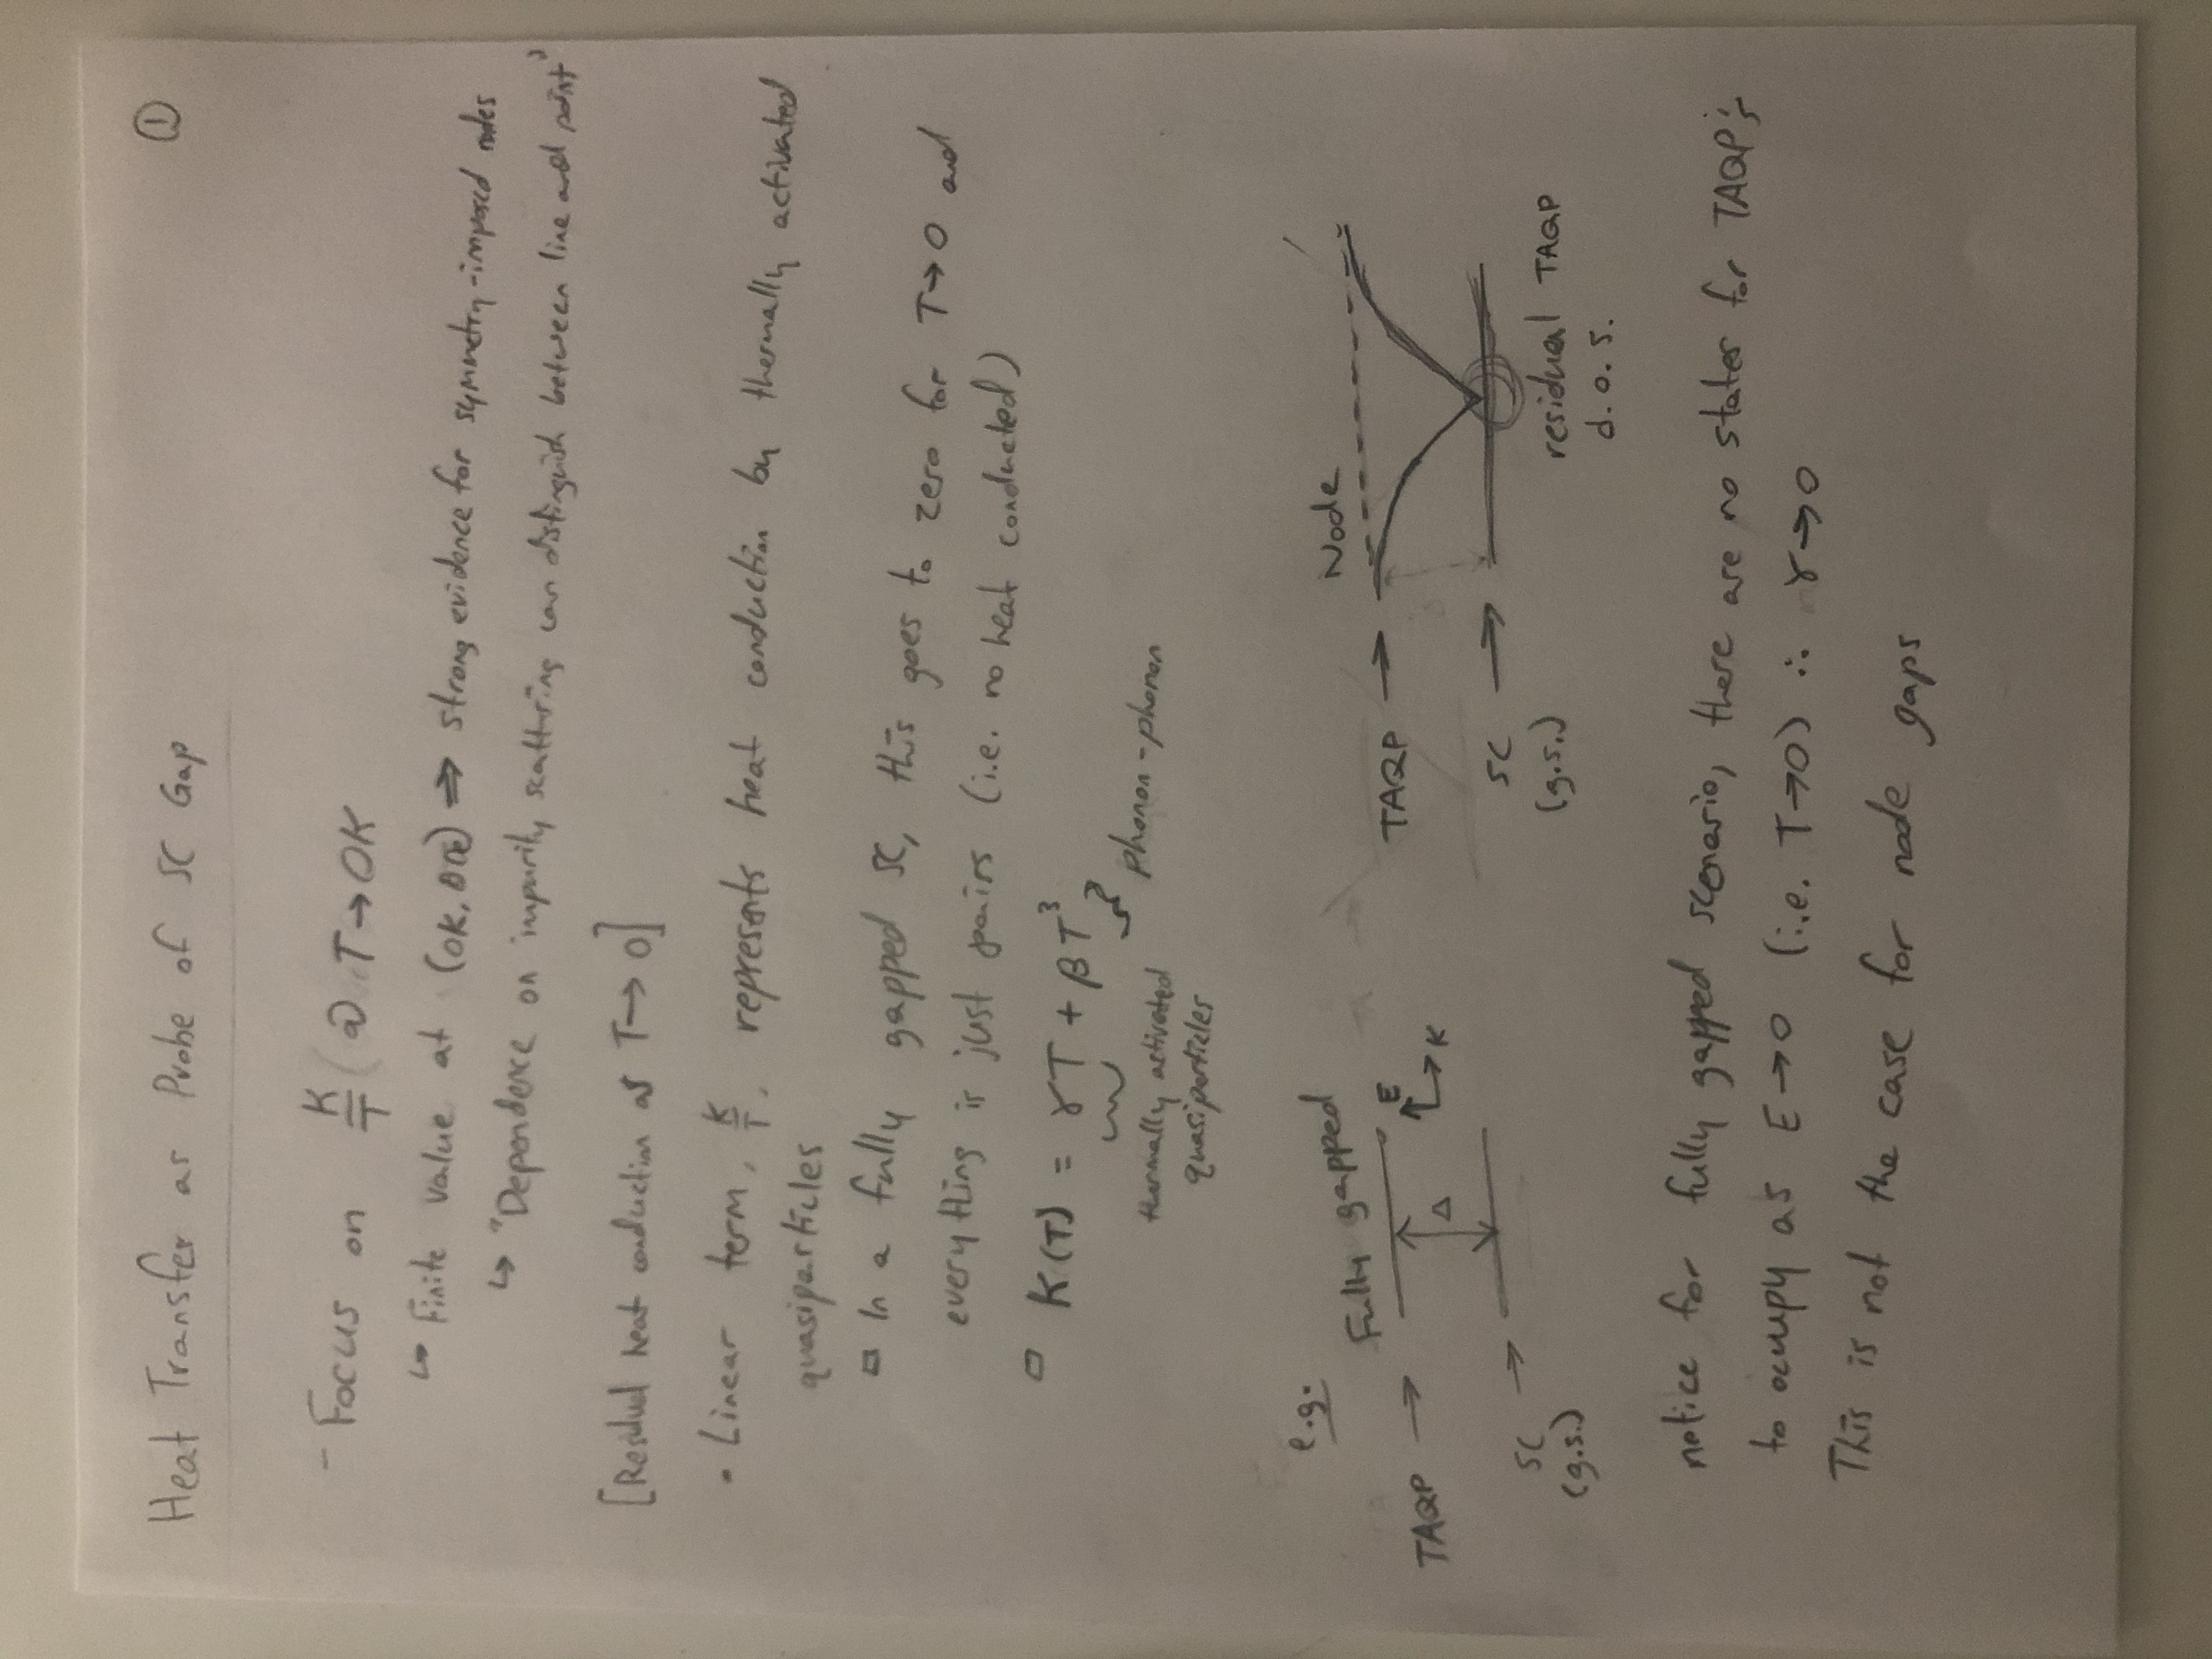 ①
Heat Transfer as Probe of SC Gap
- Focus on K/T @ T→0K
↳ Finite value at (0K, 0 Oe) ⇒ strong evidence for symmetry-imposed nodes
↳ "Dependence on impurity scattering can distinguish between line and point"
[Residual heat conduction as T→0]
• Linear term, K/T, represents heat conduction by thermally activated
quasiparticles
▫ In a fully gapped SC, this goes to zero for T→0 and
everything is just pairs (i.e. no heat conducted)
▫ K(T) = γT + βT³
} phonon-phonon
thermally activated
quasiparticles
e.g.
Fully gapped
TAQP →
Δ
E
K
SC →
(g.s.)
Node
TAQP →
SC →
(g.s.)
residual TAQP
d.o.s.
notice for fully gapped scenario, there are no states for TAQP's
to occupy as E→0 (i.e. T→0) ∴ γ→0
This is not the case for node gaps